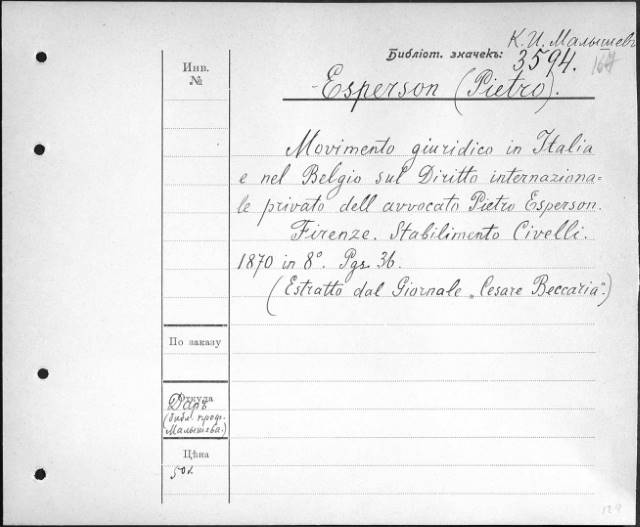 К. И. Малышевъ
Библіот. значекъ: 3594.
Инв.
№
Esperson (Pietro).
Movimento giuridico in Italia
e nel Belgio sul Diritto internaziona=
le privato dell avvocato Pietro Esperson.
Firenze. Stabilimento Civelli.
1870 in 8°. Pgs. 36.
(Estratto dal Giornale „Cesare Beccaria“.)
По заказу
Откуда
Даръ
(библ. проф.
Малышева.)
Цѣна
50
129